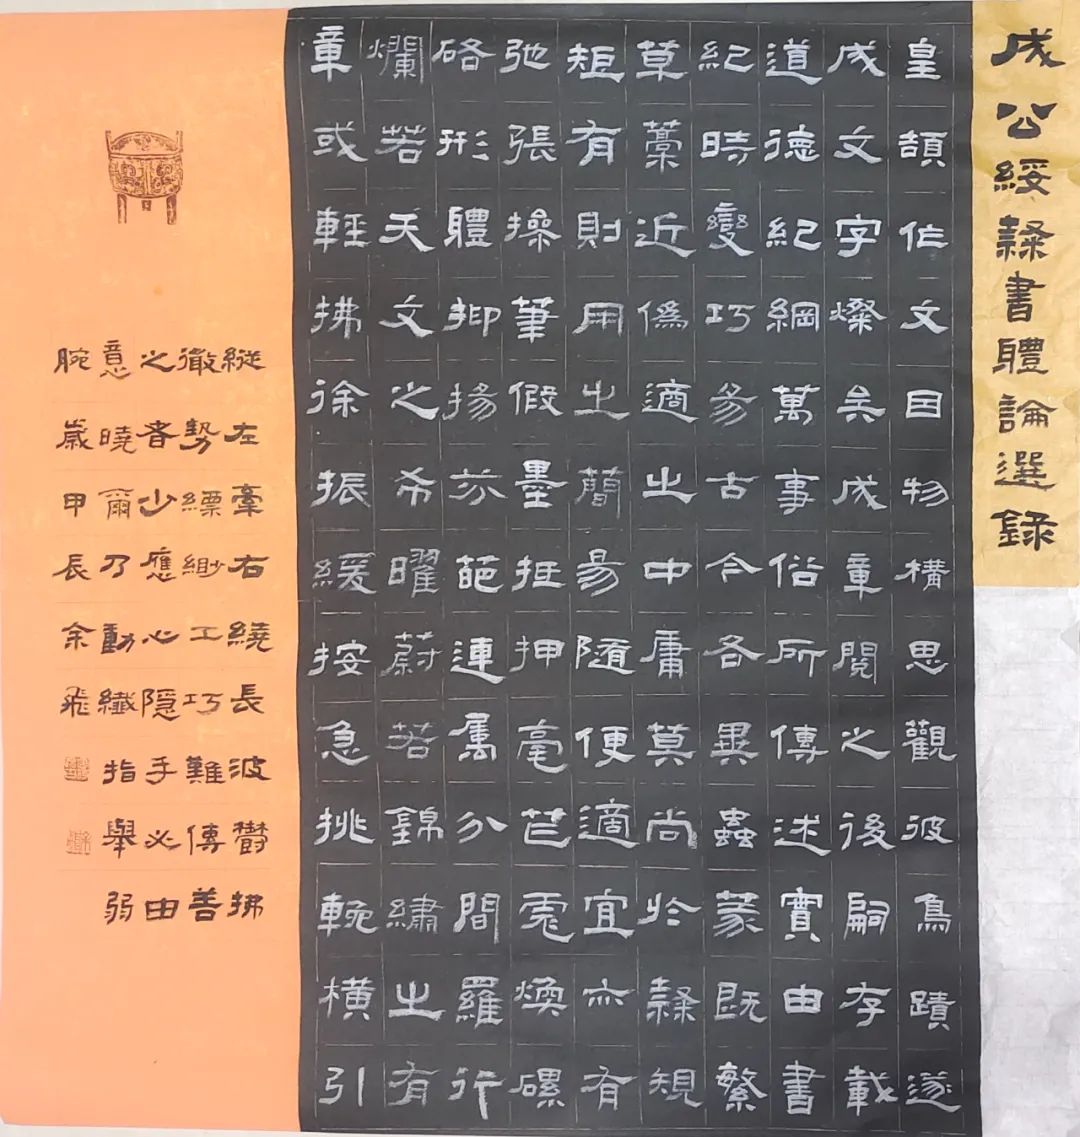 成公綏隸書體論選錄
皇頡作文因物構思觀彼鳥蹟遂
成文字燦矣成章閱之後嗣存載
道德紀綱萬事俗所傳述實由書
紀時變巧易古今各異蟲篆既繁
草藁近偽適之中庸莫尚於隸規
矩有則用之簡易隨便適宜亦有
弛張操筆假墨抵押毫芒彪煥磥
硌形體抑揚芬葩連屬分間羅行
爛若天文之希曜蔚若錦繡之有
章或輕拂徐振緩按急挑輓橫引
縱左牽右繞長波鬱拂
徹勢縹緲工巧難傳善
之者少應心隱手必由
意曉爾乃動纖指舉弱
腕歲甲辰余飛